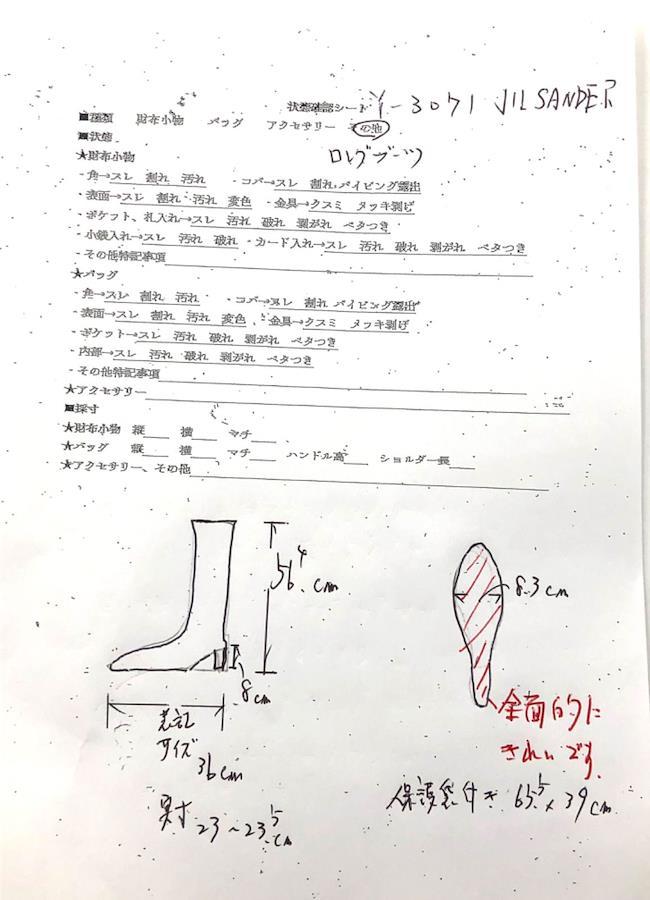 状態確認シート Y-3071 JIL SANDER
■種類 財布小物 バッグ アクセサリー その他
■状態 ロングブーツ
★財布小物
・角→スレ 割れ 汚れ ・コバ→スレ 割れ パイピング露出
・表面→スレ 割れ 汚れ 変色 ・金具→クスミ メッキ剥げ
・ポケット、札入れ→スレ 汚れ 破れ 剥がれ ベタつき
・小銭入れ→スレ 汚れ 破れ ・カード入れ→スレ 汚れ 破れ 剥がれ ベタつき
・その他特記事項
★バッグ
・角→スレ 割れ 汚れ ・コバ→スレ 割れ パイピング露出
・表面→スレ 割れ 汚れ 変色 ・金具→クスミ メッキ剥げ
・ポケット→スレ 汚れ 破れ 剥がれ ベタつき
・内部→スレ 汚れ 破れ 剥がれ ベタつき
・その他特記事項
★アクセサリー
■採寸
★財布小物 縦 横 マチ
★バッグ 縦 横 マチ ハンドル高 ショルダー長
★アクセサリー、その他
56.4cm
8.3cm
8cm
表記
サイズ
36cm
全面的に
きれいです。
実寸 23~23.5cm
保護袋付き 65.5×39cm